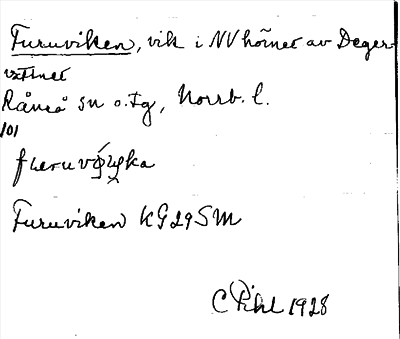 Furuviken, vik i NV hörnet av Deger-
Råneå sn o. tg, Norrb. l.
101
Furuviken KG29SM
C Pihl 1928